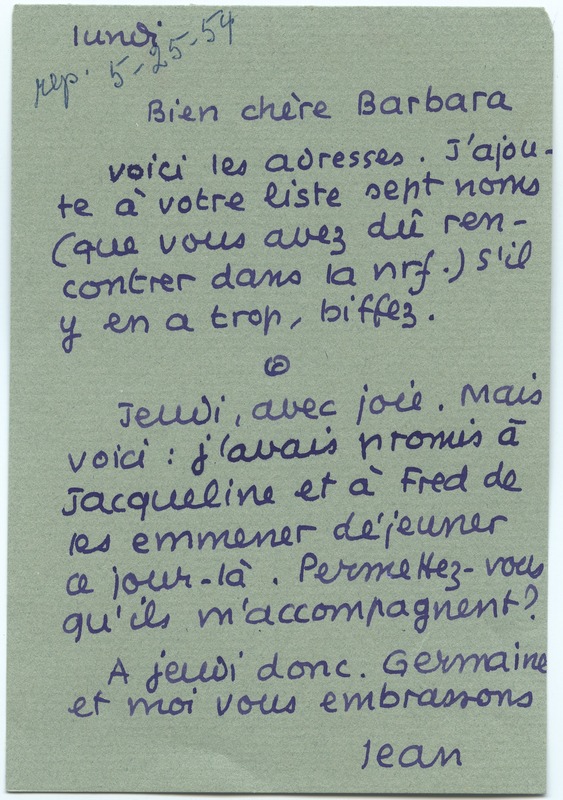 lundi
rep. 5-25-54
Bien chère Barbara
voici les adresses. J'ajou-
te à votre liste sept noms
(que vous avez dû ren-
contrer dans la nrf.) S'il
y en a trop, biffez.
Jeudi, avec joie. Mais
voici : j'avais promis à
Jacqueline et à Fred de
les emmener déjeuner
ce jour-là. Permettez-vous
qu'ils m'accompagnent?
A jeudi donc. Germaine
et moi vous embrassons
Jean